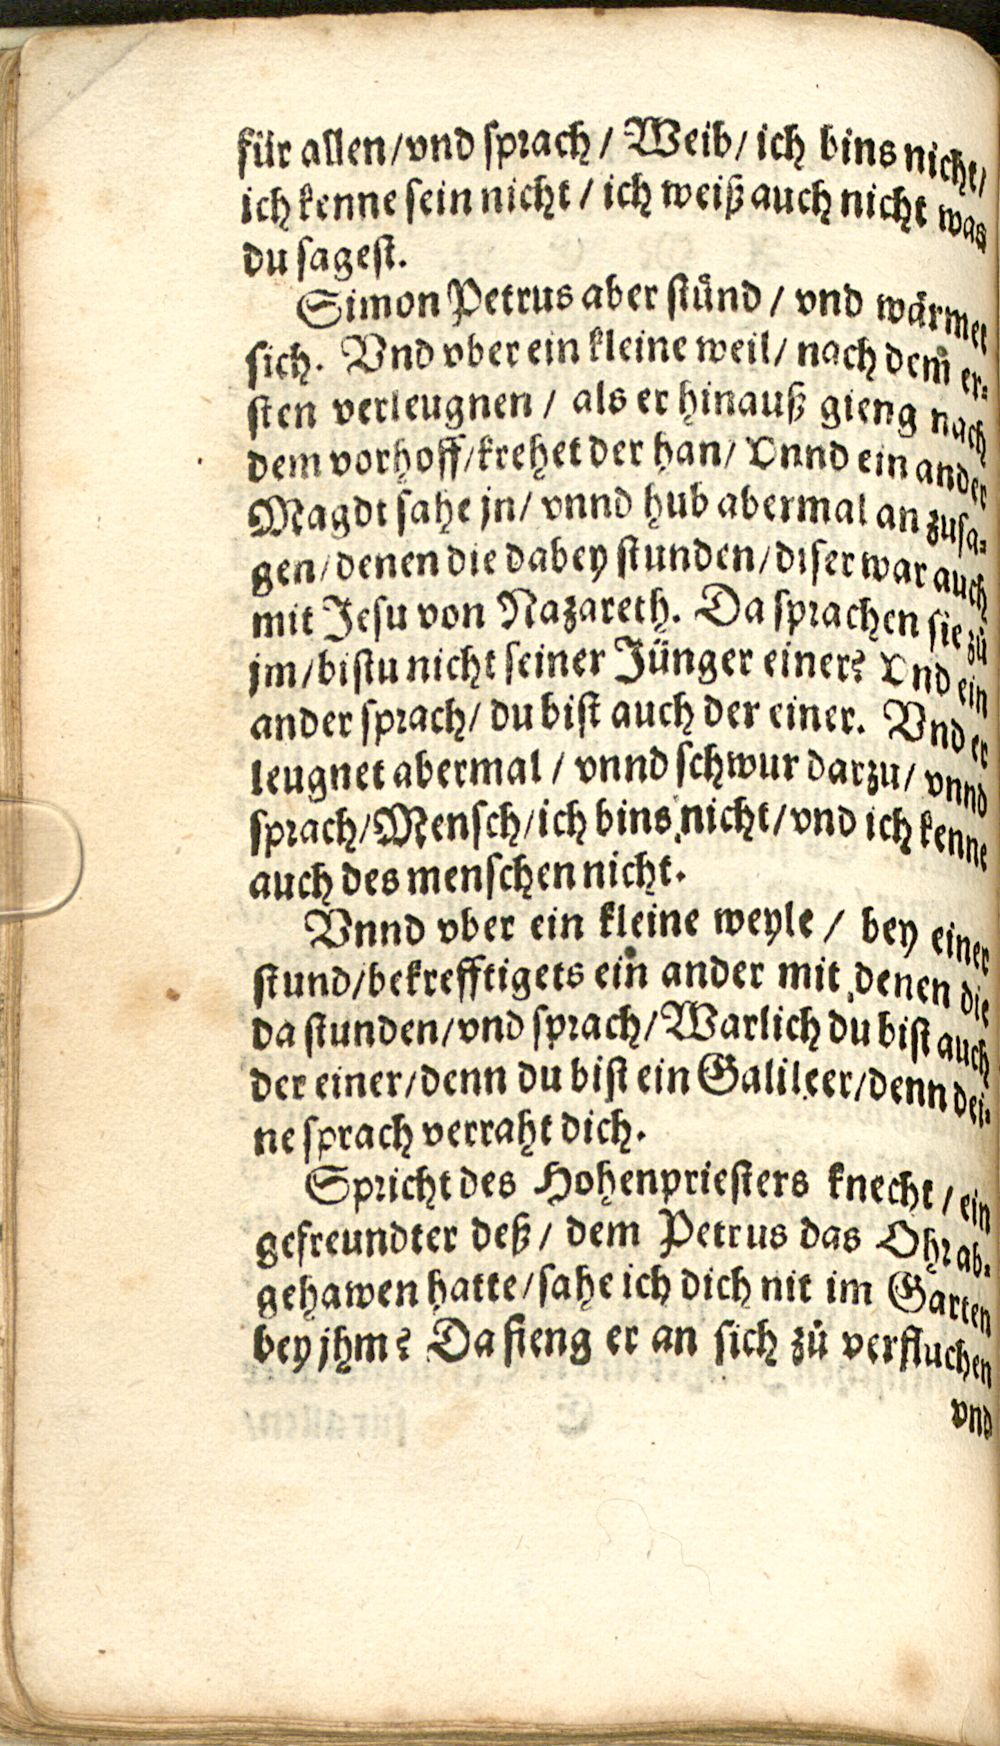 für allen/vnd sprach/ Weib/ ich bins nicht/
ich kenne sein nicht/ ich weiß auch nicht was
du sagest.
Simon Petrus aber stuͤnd/ vnd waͤrmet
sich. Vnd vber ein kleine weil/ nach dem er-
sten verleugnen/ als er hinauß gieng nach
dem vorhoff/krehet der han/ Vnnd ein ander
Magdt sahe jn/ vnnd hub abermal an zusa-
gen/denen die dabey stunden/diser war auch
mit Jesu von Nazareth. Da sprachen sie zů
jm/bistu nicht seiner Jünger einer? Vnd ein
ander sprach/ du bist auch der einer. Vnd er
leugnet abermal/ vnnd schwur darzu/ vnnd
sprach/Mensch/ich bins nicht/vnd ich kenne
auch des menschen nicht.
Vnnd vber ein kleine weyle/ bey einer
stund/bekrefftigets ein ander mit denen die
da stunden/vnd sprach/Warlich du bist auch
der einer/denn du bist ein Galileer/denn dei-
ne sprach verraht dich.
Spricht des Hohenpriesters knecht/ ein
gefreundter deß/ dem Petrus das Ohr ab-
gehawen hatte/sahe ich dich nit im Garten
bey jhm? Da fieng er an sich zů verfluchen
vnd